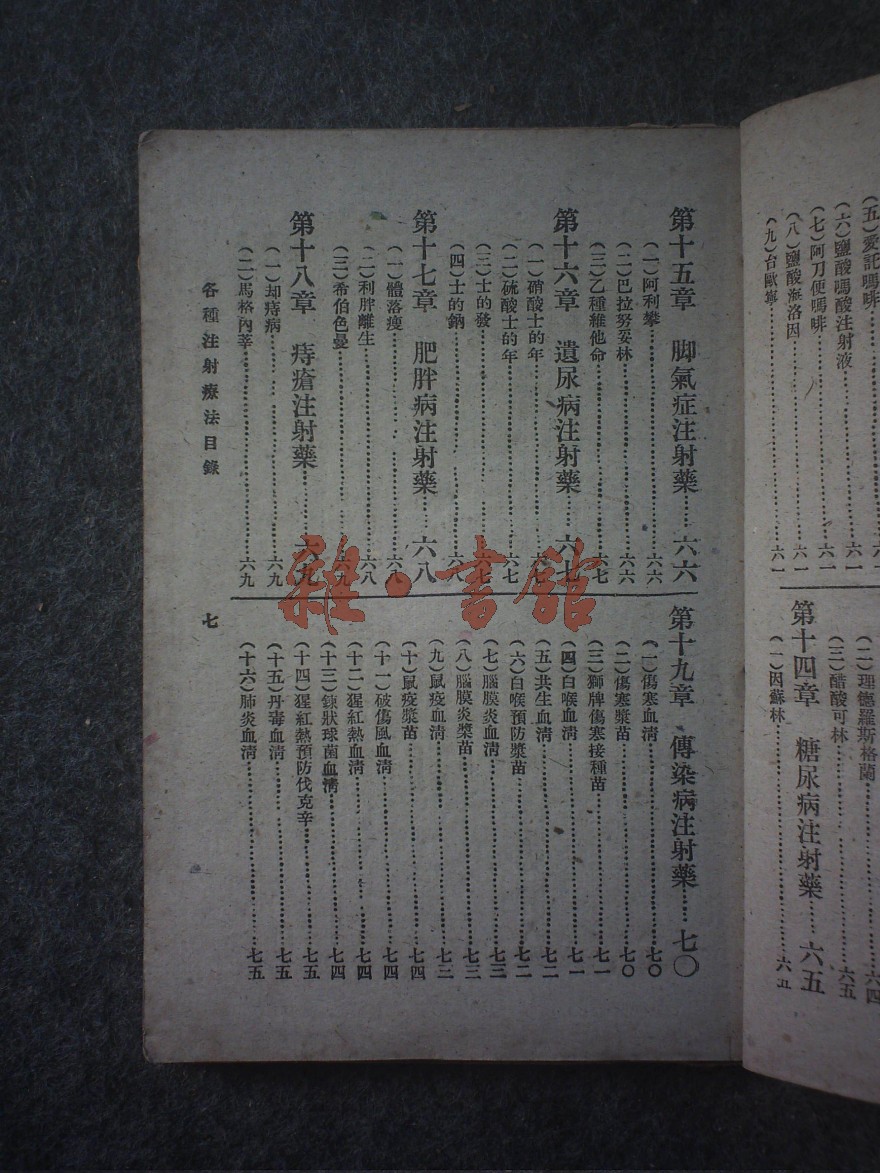 (五)愛託嗎啡
(六)鹽酸嗎酸注射液……六一
(七)阿刀便嗎啡……六一
(八)鹽酸海洛因……六一
(九)台歐寧……六一
(二)理德羅斯格蘭……六四
(三)醋酸可林……六五
第十四章　糖尿病注射藥……六五
(一)因蘇林……六五
第十五章　脚氣症注射藥……六六
(一)阿利攀……六六
(二)巴拉努妥林……六六
(三)乙種維他命……六七
第十六章　遺尿病注射藥……六七
(一)硝酸士的年……六七
(二)硫酸士的年……六七
(三)士的發……六七
(四)士的鈉……六八
第十七章　肥胖病注射藥……六八
(一)體落瘦……六八
(二)利胖離生……六八
(三)希伯色曼……六九
第十八章　痔瘡注射藥……六九
(一)却痔病……六九
(二)馬格內莘……六九
第十九章　傳染病注射藥……七〇
(一)傷寒血清……七〇
(二)傷寒漿苗……七〇
(三)獅牌傷寒接種苗……七一
(四)白喉血清……七一
(五)共生血清……七二
(六)白喉預防漿苗……七二
(七)腦膜炎血清……七三
(八)腦膜炎漿苗……七三
(九)鼠疫血清……七三
(十)鼠疫漿苗……七四
(十一)破傷風血清……七四
(十二)猩紅熱血清……七四
(十三)鍊狀球菌血清……七四
(十四)猩紅熱預防伐克辛……七五
(十五)丹毒血清……七五
(十六)肺炎血清……七五
各種注射療法目錄
七
雜·書館